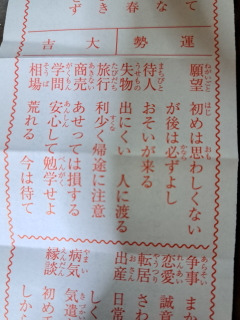 運勢 大吉
願望 初めは思わしくない
が後は必ずよし
待人 おそいが来る
失物 出にくい 人に渡る
旅行 利少く帰途に注意
商売 あせっては損する
学問 安心して勉学せよ
相場 荒れる 今は待て
争事 まか
恋愛 誠意
転居 さわ
出産 日常
しく
病気 気遣
縁談 初め
しか